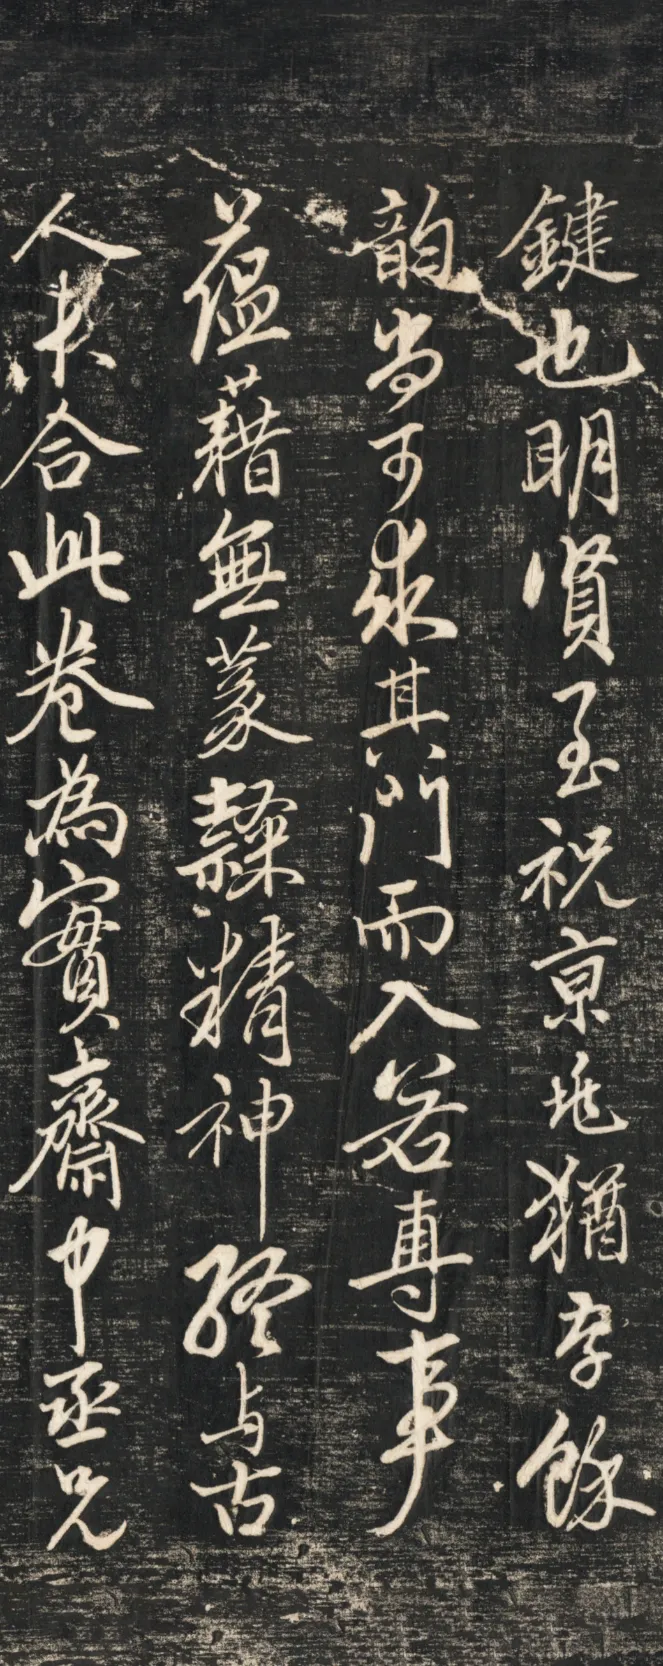 鍵也明賢至祝京兆猶存餘
韵尚可求其門而入若專事
蕴藉無篆隸精神終与古
人未合此卷為實齋中丞兄